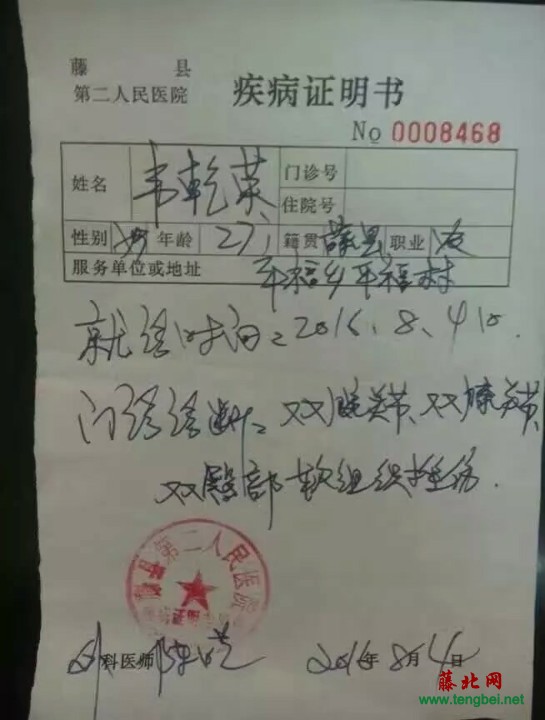 藤 县
第二人民医院 疾病证明书
No 0008468
姓名 韦乾荣 门诊号
住院号
性别 男 年龄 27 籍贯 藤县 职业 农
服务单位或地址 平福乡平福村
就诊时间:2016、8、4日.
门诊诊断: 双腕关节、双膝关节、
双臀部软组织挫伤.
藤县第二人民医院
外科医师 陈 2016年8月4日
藤北网
www.tengbei.net